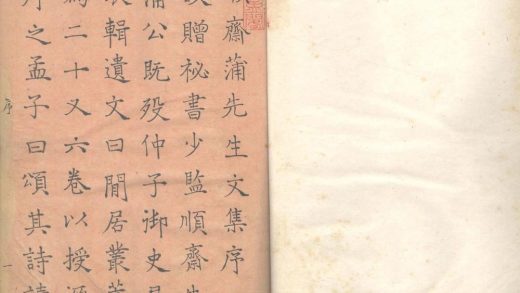 齋蒲先生文集序
贈祕書少監順齋
蒲公既歿仲子御史
輯遺文曰閒居叢
為二十又六卷以授
序之孟子曰頌其詩讀
序
一